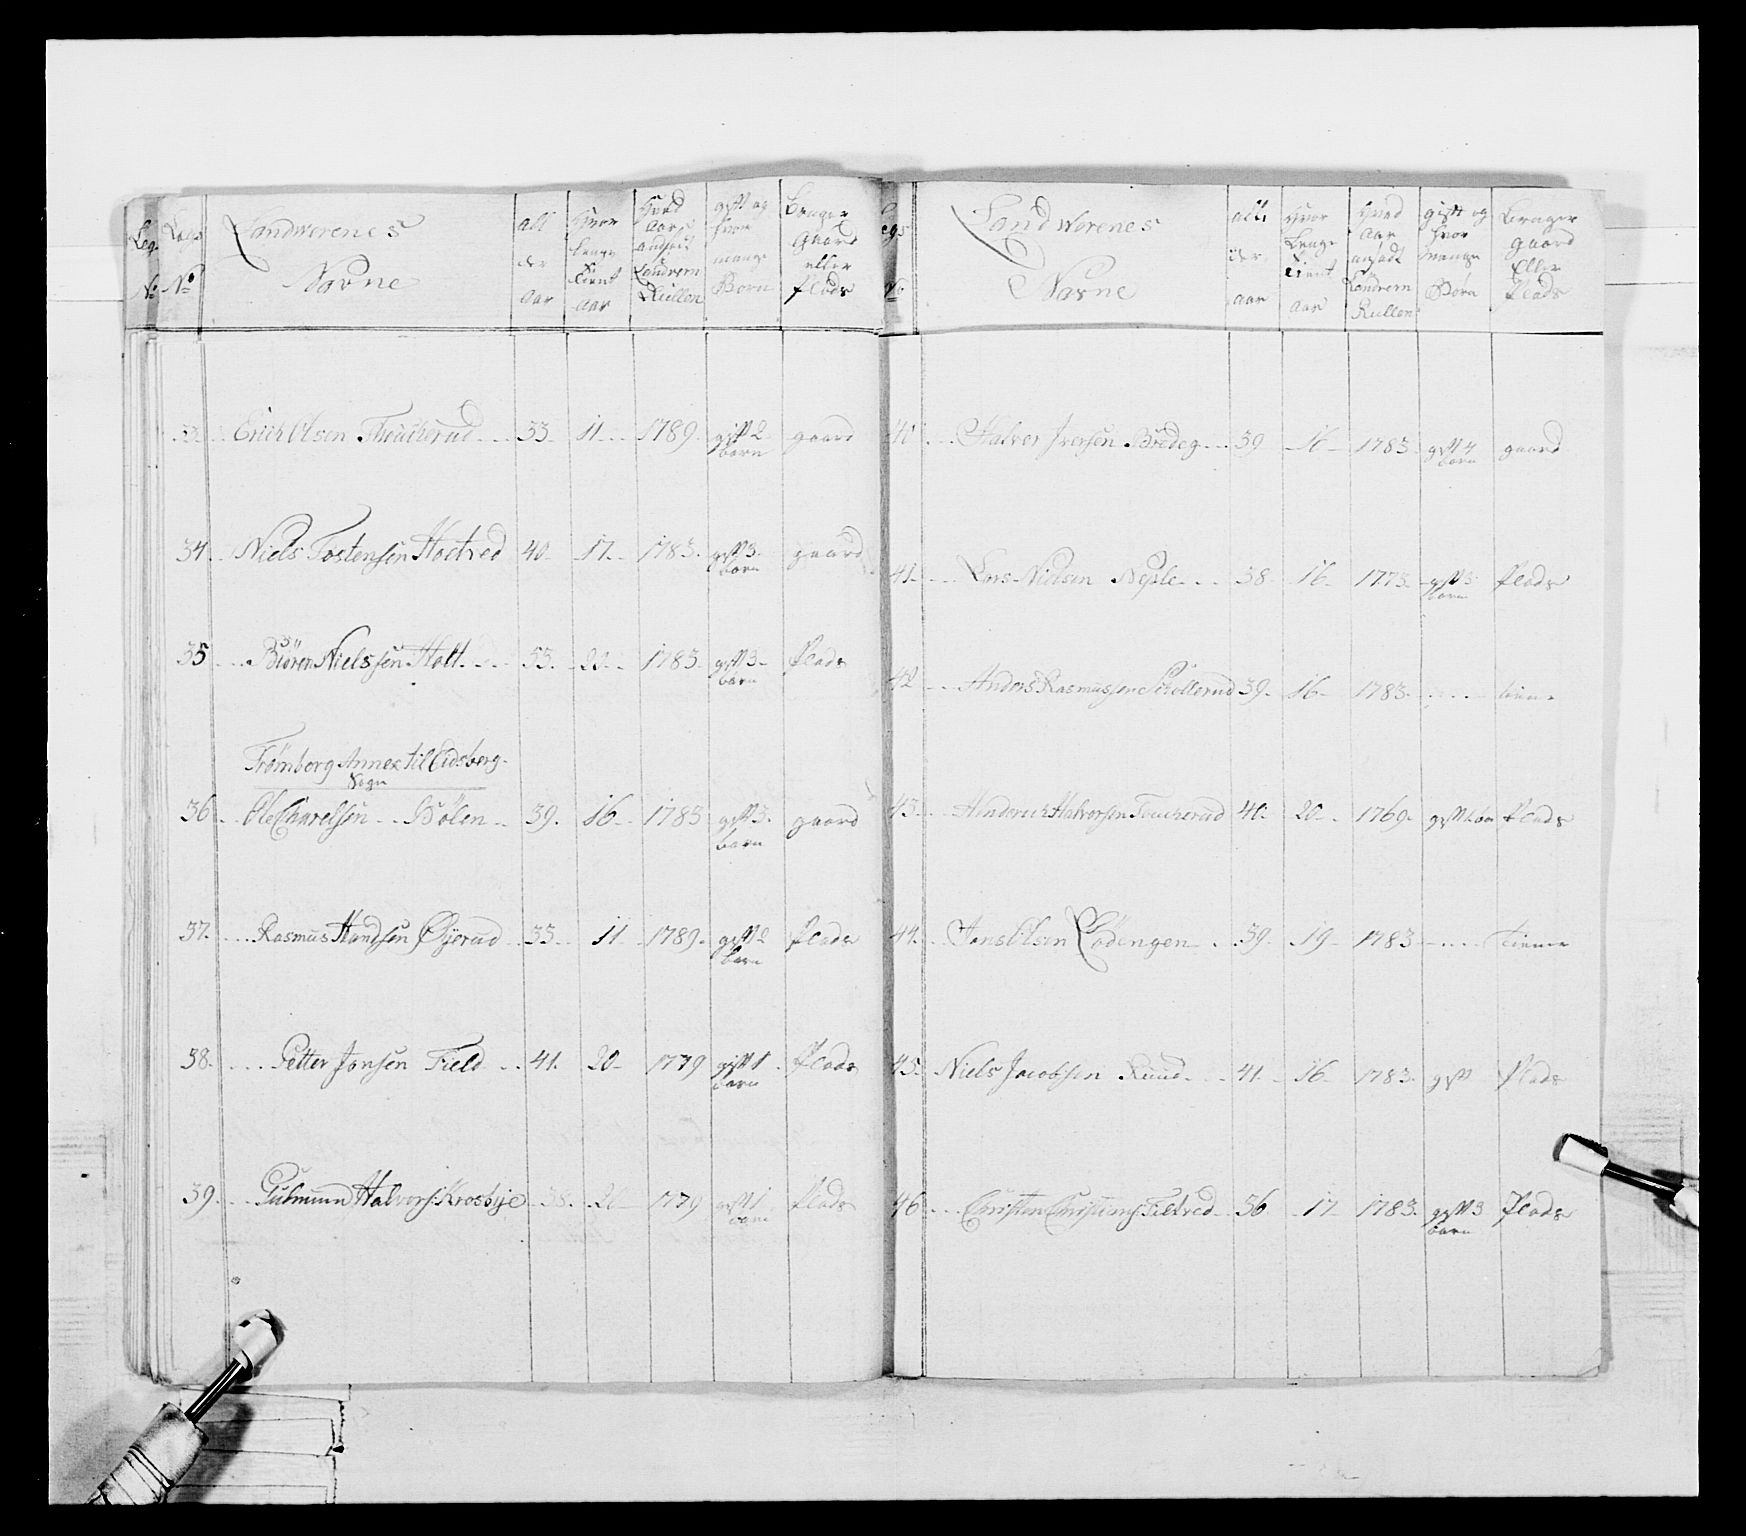 Legs No Landwerenes Navne all der aar Hvor Lenge Tient aar Hvad Aar ansadt Landvern Rullen gift og hvor mange Børn Bruger Gaard eller Plads
33. Erich Olsen Thoucherud 33 11 1789 gift 2 børn gaard
34. Niels Tostensen Hoctved 40 17 1783 gift 3 børn gaard
35 Biören Nielssen Holt 53 20 1783 gift 3 børn Plads
Trømborg Annex til Eidsberg Sogn
36 Ole Charelsen Bölen 39 16 1783 gift 3 børn gaard
37. Rasmus Handsen Öÿerud 33 11 1789 gift 2 børn Plads
38. Petter Jonsen Field 41 20 1779 gift 1 børn Plads
39. Gulmund Halvors: Krosbÿe 38 20 1779 gift 1 børn Plads
Legs No Landwerenes Navne alle der aar Hvor Lenge Tient aar Hvad aar ansadt Landvern Rullen gift og hvor mange Børn Bruger gaard Eller Plads
40 Halvor Iversen Bredeg 39 16 1783 gift 4 børn gaard
41 Lars Nielsen Nesle 38 16 1773 gift 3 børn Plads
42 Anders Rasmussen Skollerud 39 16 1783 tiener
43 Hinderich Halvorsen Toucherud 40 20 1769 gift 1 bør Plads
44. Jens Olsen Lödengen 39 19 1783 tiener
45. Niels Jacobsen Ruud 41 16 1783 gift Plads
46 Christen Christians: Tietved 36 17 1783 gift 3 børn Plads